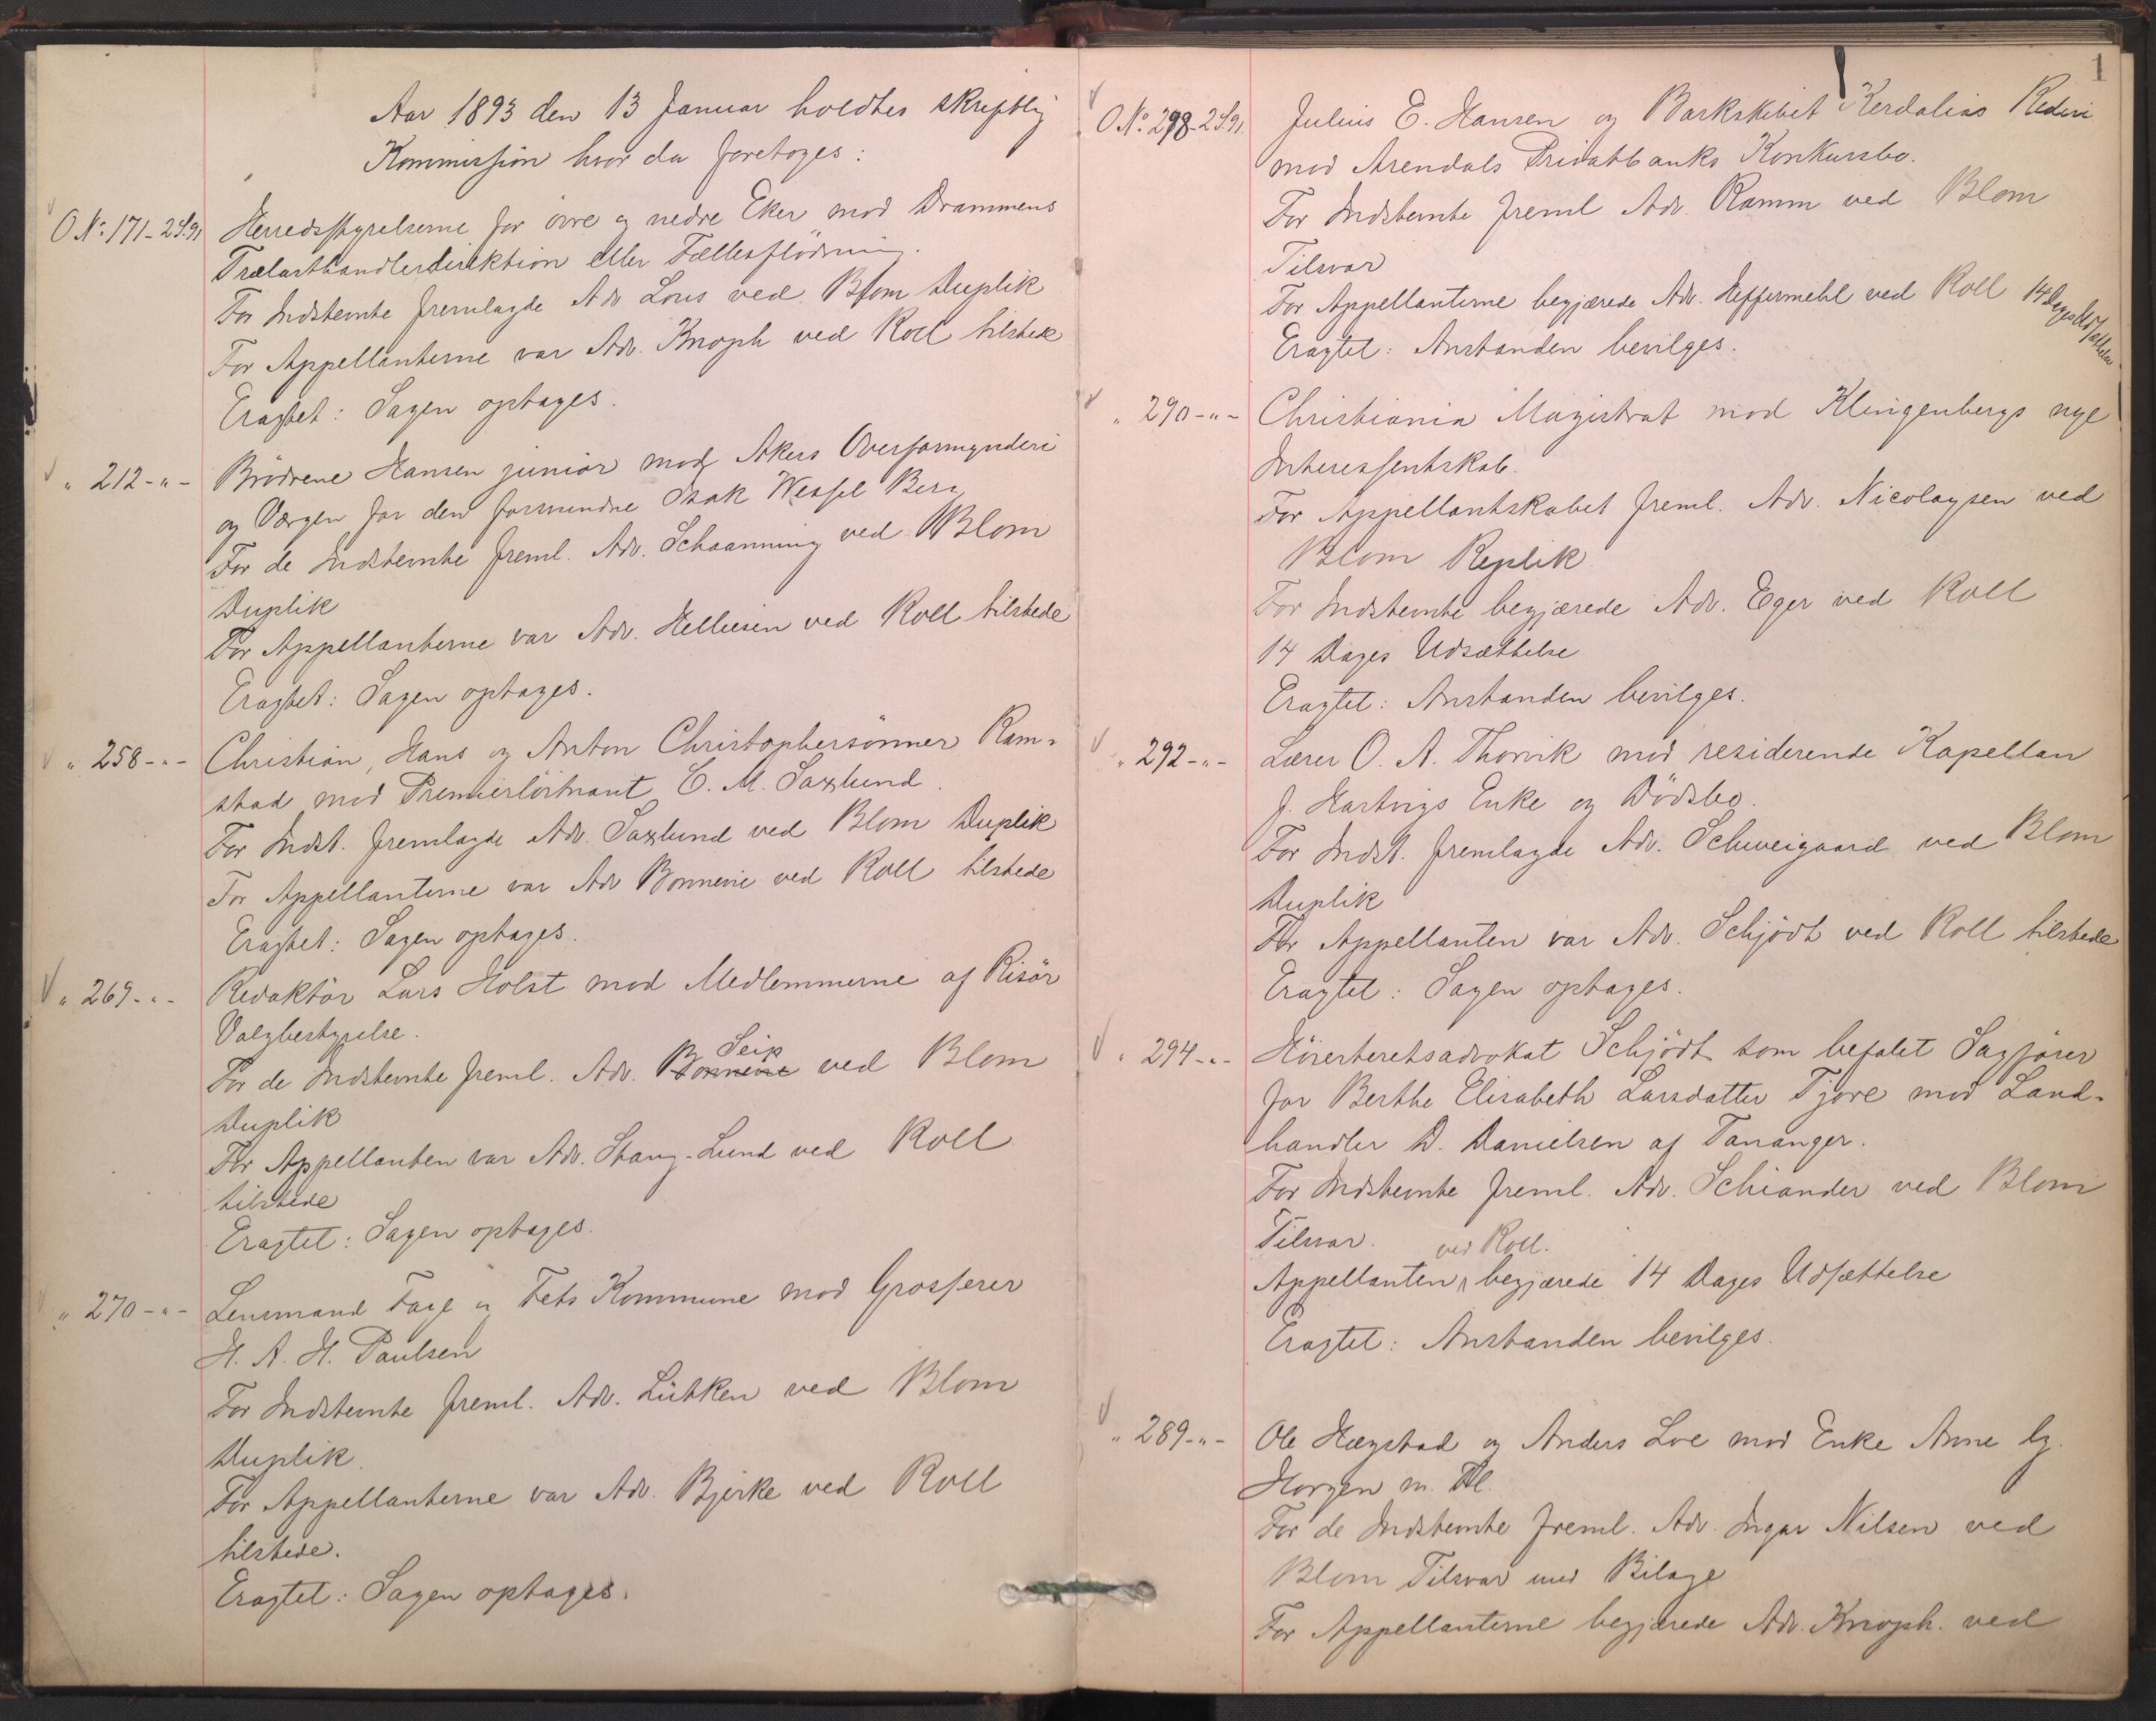 Aar 1893 den 13 Januar holdtes skriftlig
Kommission hvor da foretoges:
O.No. 171-2S.91
Herredsstyrelserne for övre og nedre Eker mod Drammens
Trælasthandlerdirektion eller Fællesflödning.
For Indstevnte fremlagde Adv Lous ved Blom Duplik
For Appellanterne var Adv. Knoph ved Roll tilstede
Eragtet: Sagen optages.
" 212-"-
Brödrene Hansen junior mod Akers Overformynderi
og Værgen for den forsvundne Isak Wessel Berg
For de Indstevnte freml. Adv. Schaanning ved Blom
Duplik
For Appellanterne var Adv. Helliesen ved Roll tilstede
Eragtet: Sagen optages.
" 258-"-
Christian, Hans og Anton Christophersönner Ram-
stad mod Premierlöitnant C. M. Saxlund.
For Indst. fremlagde Adv. Saxlund ved Blom Duplik
For Appellanterne var Adv Bonnevie ved Roll tilstede
Eragtet: Sagen optages.
" 269-"-
Redaktör Lars Holst mod Medlemmerne af Risör
Valgbestyrelse.
Seip
For de Indstevnte freml. Adv. Bonnevie ved Blom
Duplik
For Appellanten var Adv. Stang-Lund ved Roll
tilstede
Eragtet: Sagen optages.
" 270-"-
Lensmand Faye og Fets Kommune mod Grosserer
H. A. H. Paulsen
For Indstevnte freml. Adv. Lütken ved Blom
Duplik.
For Appellanterne var Adv. Bjerke ved Roll
tilstede.
Eragtet: Sagen optages.
1
O.No. 298-2S.91.
Julius E. Hansen og Barkskibet Kerdalias Rederi
mod Arendals Privatbanks Konkursbo.
For Indstevnte freml Adv. Ramm ved Blom
Tilsvar
For Appellanterne begjærede Adv. Heffermehl ved Roll 14 Dages Udsættelse
Eragtet: Anstanden bevilges.
" 290-"-
Christiania Magistrat mod Klingenbergs nye
Interessentskab.
For Appellantskabet freml. Adv. Nicolaysen ved
Blom Replik
For Indstevnte begjærede Adv. Eger ved Roll
14 Dages Udsættelse
Eragtet: Anstanden bevilges.
" 292-"-
Lærer O. A. Thorvik mod residerende Kapellan
J. Hartvigs Enke og Dödsbo.
For Indst. fremlagde Adv. Schweigaard ved Blom
Duplik
For Appellanten var Adv. Schjödt ved Roll tilstede
Eragtet: Sagen optages.
" 294-"-
Höiesteretsadvokat Schjödt som befalet Sagförer
for Berthe Elisabeth Larsdatter Tjore mod Land-
handler D. Danielsen af Tananger.
For Indstevnte freml. Adv. Schiander ved Blom
Tilsvar.
ved Roll.
Appellanten begjærede 14 Dages Udsættelse
Eragtet: Anstanden bevilges.
" 289-"-
Ole Hægstad og Anders Loe mod Enke Anne
Horgen m. Fl.
For de Indstevnte freml. Adv. Ingar Nilsen ved
Blom Tilsvar med Bilage
For Appellanterne begjærede Adv. Knoph. ved